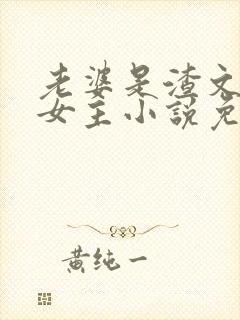 老婆是渣文
女主小说免
黄纯一